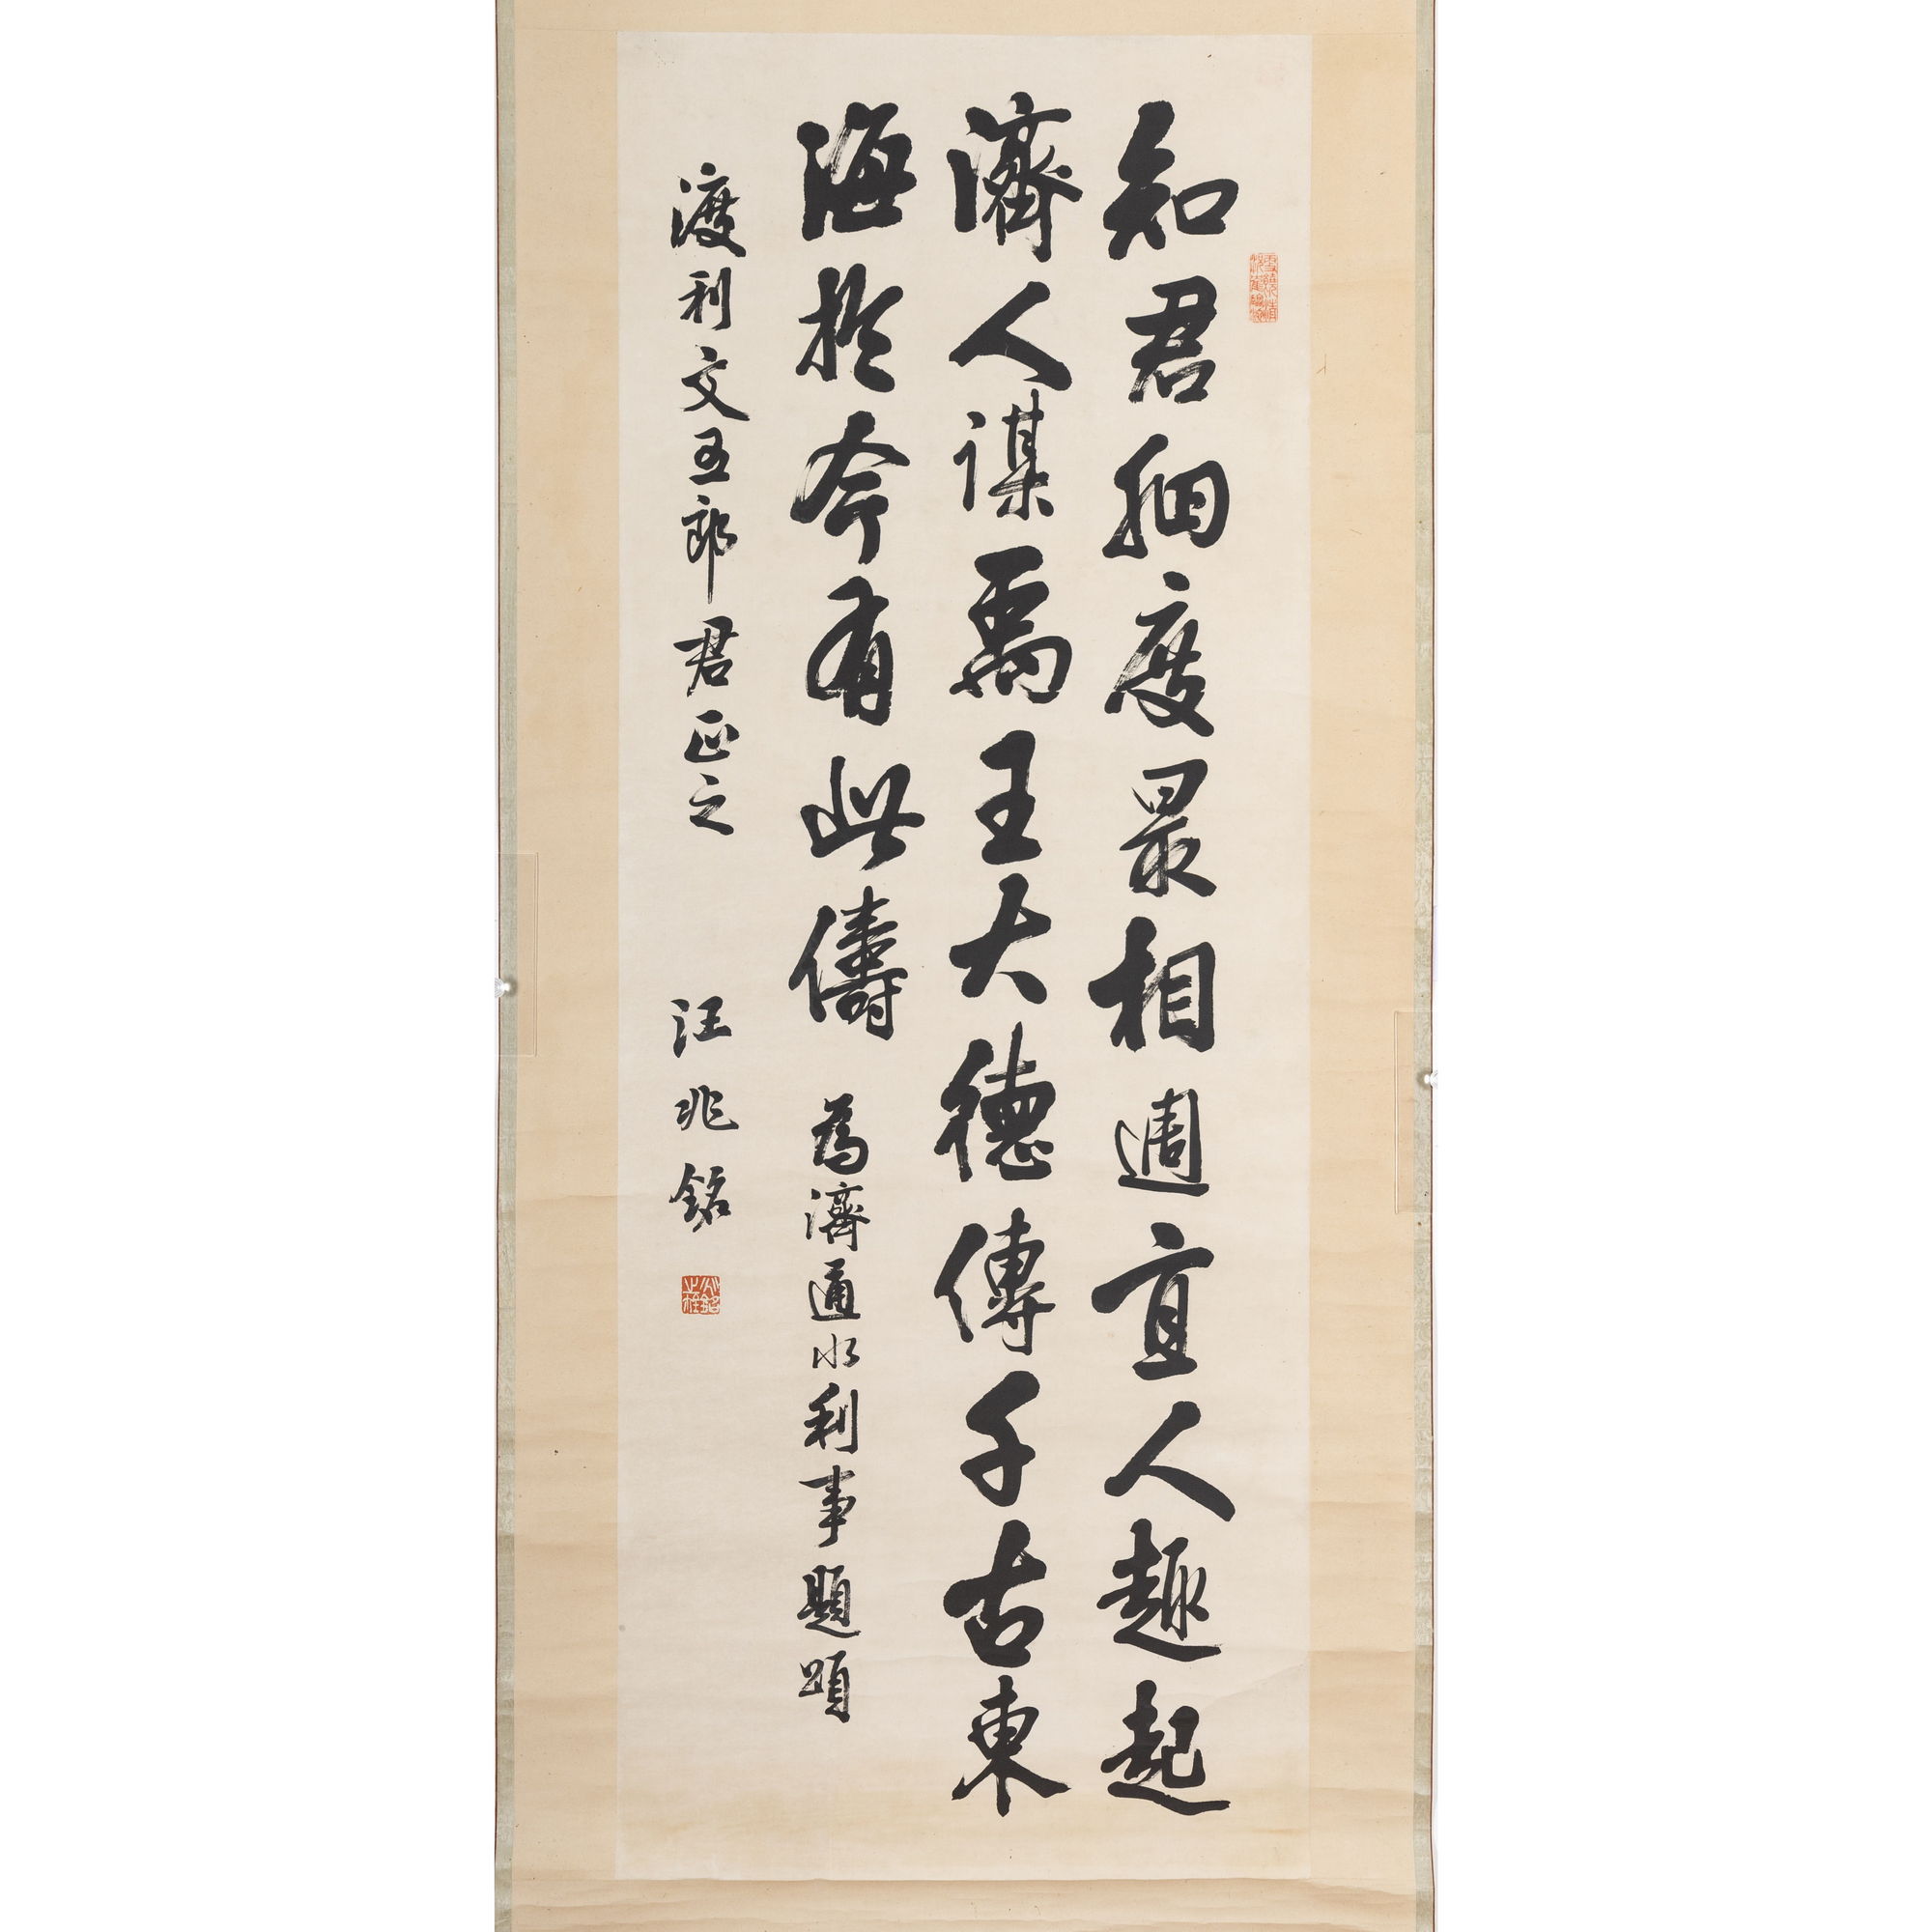 知君細度最相週宜人趣起
濟人謀禹王大德傳千古東
海於今有此儔 為濟通水利事題頌
渡利文五郎君正之 汪兆銘
兆銘之